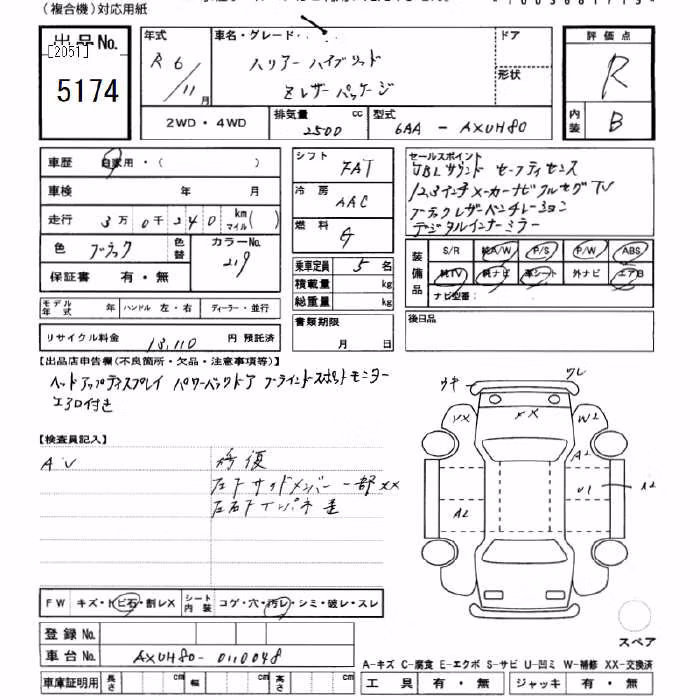 (複合機)対応用紙
出品No.
[2051]
5174
年式
R6/11月
車名・グレード
ハリアー ハイブリッド
Zレザーパッケージ
ドア
形状
2WD・4WD
排気量
2500
cc
型式
6AA - AXUH80
評価点
R
内装
B
車歴
自家用・( )
車検
年 月
走行
3万0千240
km
マイル
( )
色
ブラック
色替
カラーNo.
219
保証書
有・無
シフト
FAT
冷房
AAC
燃料
G
乗車定員
5名
積載量
kg
総重量
kg
書類期限
月 日
セールスポイント
JBLサウンド セーフティセンス
12.3インチメーカーナビフルセグTV
ブラックレザーベンチレーション
デジタルインナーミラー
装備品
S/R
純A/W
P/S
P/W
ABS
純TV
純ナビ
革シート
外ナビ
エアB
ナビ型番:
後日品
モデル年式
年
ハンドル 左・右
ディーラー・並行
リサイクル料金
13,110
円 預託済
【出品店申告欄(不良箇所・欠品・注意事項等)】
ヘッドアップディスプレイ パワーバックドア ブラインドスポットモニター
エアロ付き
【検査員記入】
AV
修復
左下サイドメンバー一部XX
左右下インパネ
ウキ
ワレ
XX
XX
W2
A2
U1
A2
A2
FW
キズ・トビ石・割レX
シート内装
コゲ・穴・汚レ・シミ・破レ・スレ
スペア
登録No.
車台No.
AXUH80-0110048
A-キズ C-腐食 E-エクボ S-サビ U-凹ミ W-補修 XX-交換済
車庫証明用
長さ
cm
幅
cm
高さ
cm
工具
有・無
ジャッキ
有・無